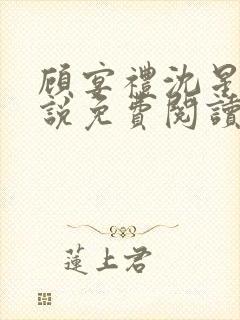 顾宴禮沈星
說免費閱讀
蓮上君